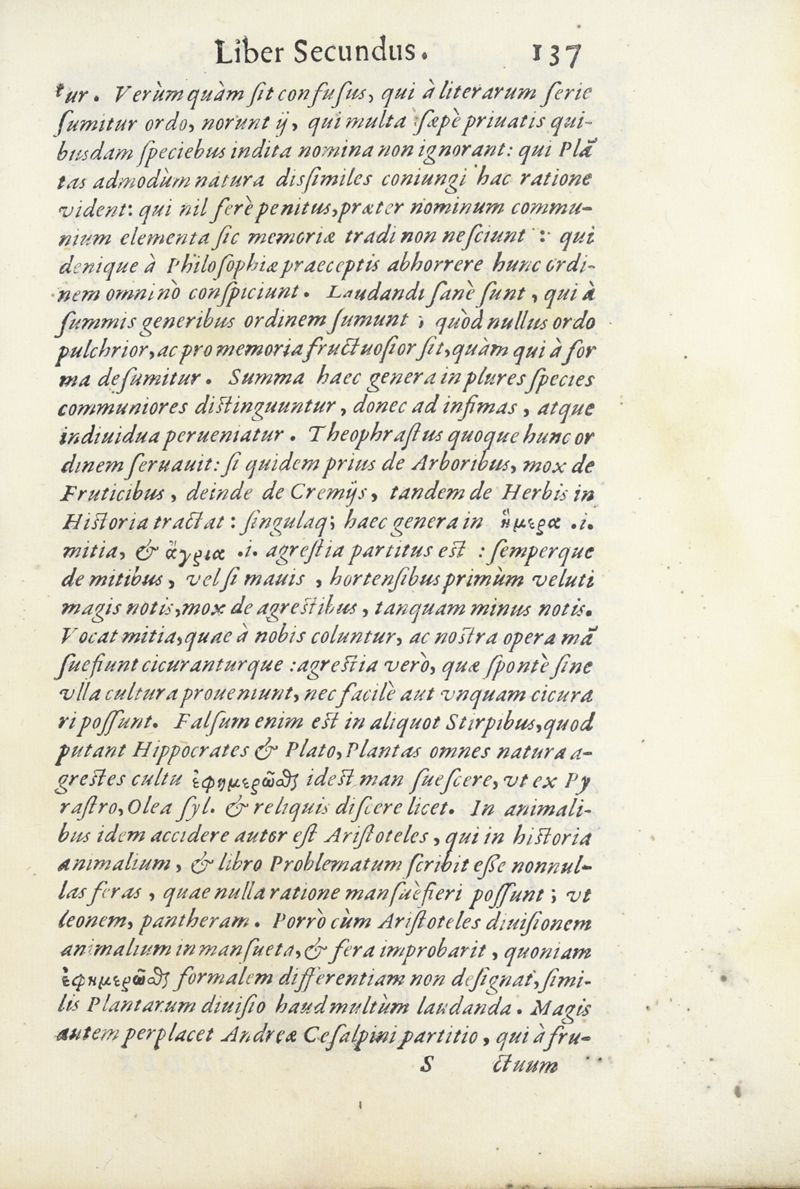 Liber Secundus. 137
tur. Verùm quàm ſit confuſus, qui à literarum ſerie
ſumitur ordo, norunt ij, qui multa ſæpè priuatis qui-
busdam ſpeciebus indita nomina non ignorant: qui Plã
tas admodùm natura disſimiles coniungi hac ratione
vident: qui nil ferè penitus, præter nominum commu-
nium elementa ſic memoriæ tradi non neſciunt: qui
denique à Philoſophiæ praeceptis abhorrere hunc ordi-
nem omninò conſpiciunt. Laudandi ſanè ſunt, qui à
ſummis generibus ordinem ſumunt; quòd nullus ordo
pulchrior, ac pro memoria fructuoſior ſit, quàm qui à for
ma deſumitur. Summa haec genera in plures ſpecies
communiores diſtinguuntur, donec ad infimas, atque
indiuidua perueniatur. Theophraſtus quoque hunc or
dinem ſeruauit: ſi quidem prius de Arboribus, mox de
Fruticibus, deinde de Cremijs, tandem de Herbis in
Hiſtoria tractat: ſingulaq; haec genera in ἥμερα .i.
mitia, & ἄγρια .i. agreſtia partitus eſt: ſemperque
de mitibus, vel ſi mauis, hortenſibus primùm veluti
magis notis, mox de agreſtibus, tanquam minus notis.
Vocat mitia, quae à nobis coluntur, ac noſtra opera mã
ſuefiunt cicuranturque: agreſtia verò, quæ ſpontè ſine
vlla cultura proueniunt, nec facilè aut vnquam cicura
ri poſſunt. Falſum enim eſt in aliquot Stirpibus, quod
putant Hippocrates & Plato, Plantas omnes natura a-
greſtes cultu ἐφημερῶϑζ ideſt man ſueſcere, vt ex Py
raſtro, Olea ſyl. & reliquis diſcere licet. In animali-
bus idem accidere autor eſt Ariſtoteles, qui in hiſtoria
animalium, & libro Problematum ſcribit eſſe nonnul-
las feras, quae nulla ratione manſuèfieri poſſunt; vt
leonem, pantheram. Porrò cùm Ariſtoteles diuiſionem
animalium in manſueta, & fera improbarit, quoniam
ἐφημερῶϑζ formalem differentiam non deſignat, ſimi-
lis Plantarum diuiſio haud multùm laudanda. Magis
autem perplacet Andreæ Ceſalpini partitio, qui à fru-
S ctuum